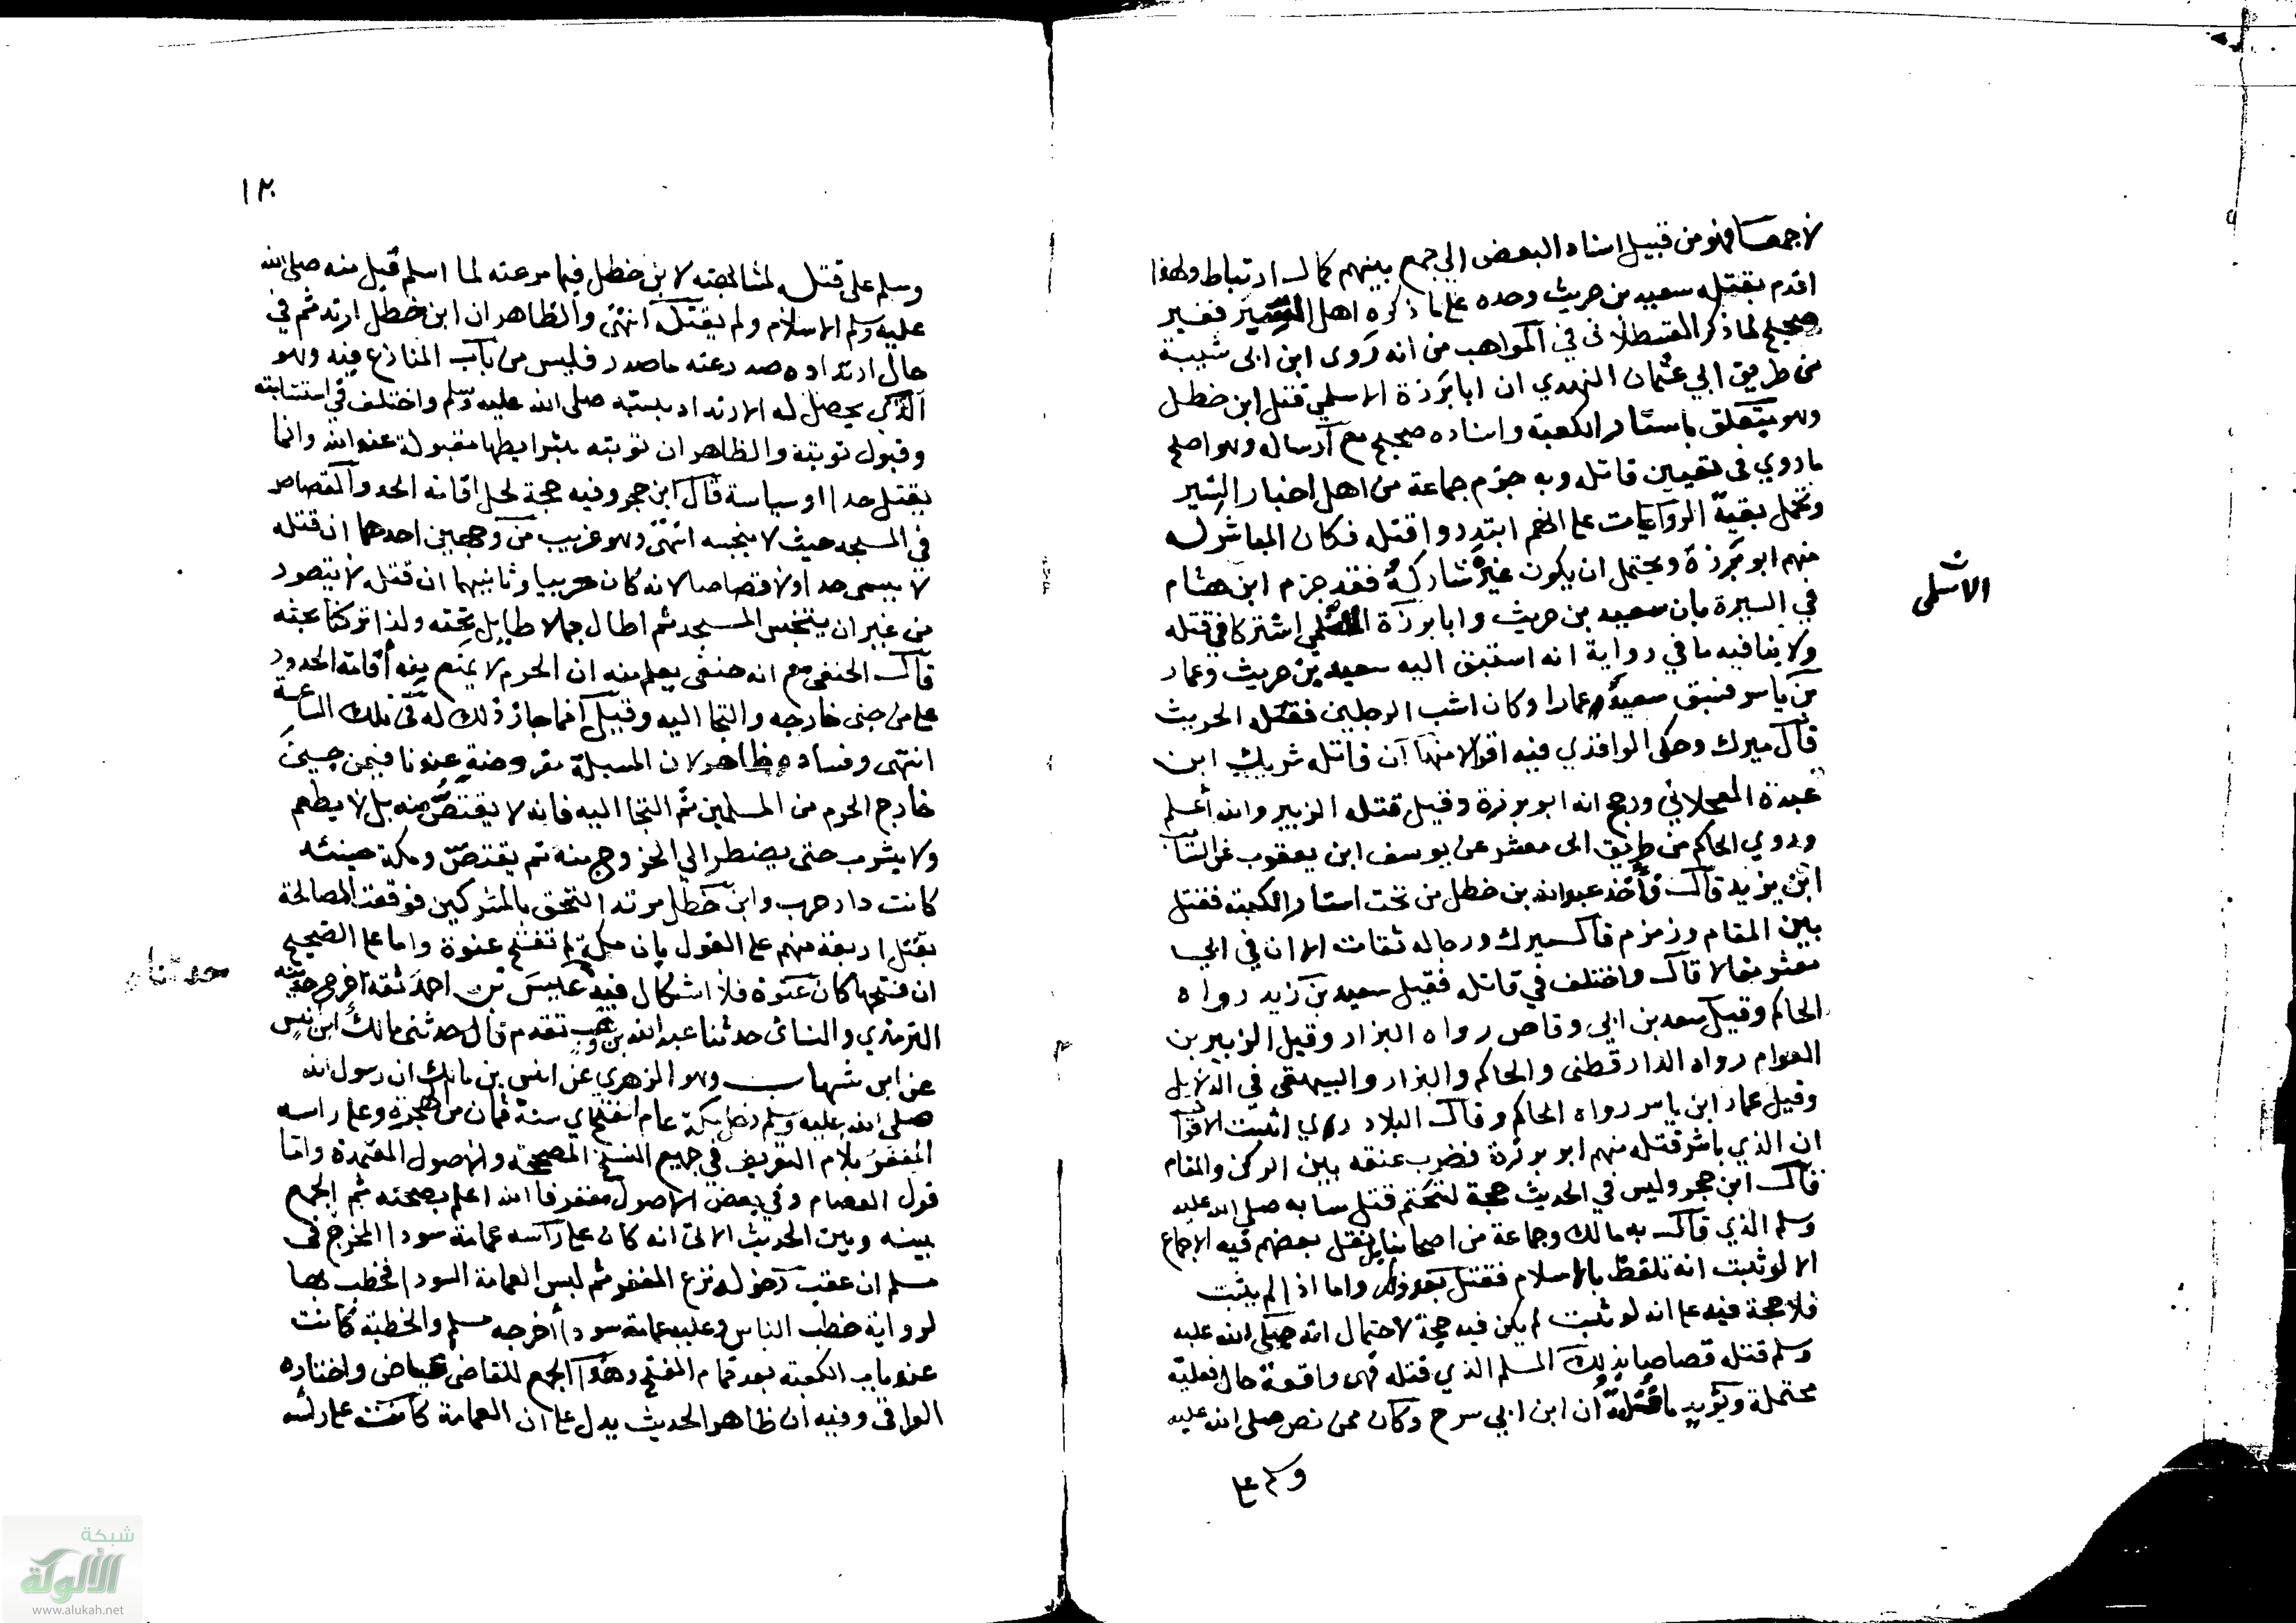 لا جمعا فهو من قبيل اسناد البعض الي جمع بينهم كمال ارتباط ولهذا
اقدم بقتله سعيد بن حريث وحده على ما ذكره اهل السير فغير
صحيح لما ذكر القسطلاني في المواهب من انه روى ابن ابي شيبة
من طريق ابي عثمان النهدي ان ابا برزة الاسلمي قتل ابن خطل
وهو يتعلق باستار الكعبة واسناده صحيح مع ارساله وهو اصح
ما روي في تعيين قاتله وبه جزم جماعة من اهل اخبار السير
وتحمل بقية الروايات على انهم ابتدروا قتله فكان المباشر له
منهم ابو برزة ويحتمل ان يكون غيره شاركه فقد جزم ابن هشام
في السيرة بان سعيد بن حريث وابا برزة الاسلمي اشتركا في قتله
الاسلمى
ولا ينافيه ما في رواية انه استبق اليه سعيد بن حريث وعمار
بن ياسر فسبق سعيد عمارا وكان اشب الرجلين فقتله الحريث
قال ميرك وحكى الواقدي فيه اقوالا منها ان قاتله شريك ابن
عبدة العجلاني ورجح انه ابو برزة وقيل قتله الزبير والله أعلم
وروي الحاكم من طريق ابى معشر عن يوسف ابن يعقوب عن السائب
ابن يزيد قال فأخذ عبد الله بن خطل من تحت استار الكعبة فقتل
بين المقام وزمزم قال ميرك ورجاله ثقات الا ان في ابي
معشر مقالا قال واختلف في قاتله فقيل سعيد بن زيد رواه
الحاكم وقيل سعد بن ابي وقاص رواه البزار وقيل الزبير بن
العوام رواه الدارقطنى والحاكم والبزار والبيهقى في الدلايل
وقيل عمار ابن ياسر رواه الحاكم وقال البلاد ري اثبت الاقوال
ان الذي باشر قتله منهم ابو برزة فضرب عنقه بين الركن والمقام
قال ابن حجر وليس في الحديث حجة لتحتم قتل سابه صلى الله عليه
وسلم الذي قال به مالك وجماعة من اصحابنا بل نقل بعضهم فيه الاجماع
الا لو ثبت انه تلفظ بالاسلام فقتل بعد ذلك واما اذا لم يثبت
فلا حجة فيه على انه لو ثبت لم يكن فيه حجة لاحتمال انه صلى الله عليه
وسلم قتله قصاصا بذلك المسلم الذي قتله فهى واقعة حال فعلية
محتملة ويؤيد ما قلته ان ابن ابي سرح وكان ممن نص صلى الله عليه
وسلم على
١٢٠
وسلم على قتله لمشابهته لابن خطل فيما مر عنه لما اسلم قبل منه صلى الله
عليه وسلم الاسلام ولم يقتله انتهى والظاهر ان ابن خطل ارتد ثم في
حال ارتداده صدر عنه ما صدر فليس من باب المنازع فيه وهو
الذي يحصل له الارتداد بسبه صلى الله عليه وسلم واختلف في استتابته
وقبول توبته والظاهر ان توبته بشرايطها مقبولة عند الله وانما
يقتل حدا او سياسة قال ابن حجر وفيه حجة لحل اقامة الحد والقصاص
في المسجد حيث لا ينجسه انتهى وهو غريب من وجهين احدهما ان قتله
لا يسمى حدا ولا قصاصا لانه كان حربيا وثانيهما ان قتله لا يتصور
من غير ان يتنجس المسجد ثم اطال بما لا طايل تحته ولذا تركنا بحثه
قال الحنفي مع انه حنفى يعلم منه ان الحرم لا يمنع فيه أقامة الحدود
على من جنى خارجه والتجا اليه وقيل انما جاز ذلك له في تلك الساعة
انتهى وفساده ظاهر لان المسيلة مفروضة عندنا فيمن جنى
خارج الحرم من المسلمين ثم التجا اليه فانه لا يقتص منه بل لا يطعم
ولا يشرب حتى يضطر الي الخروج منه ثم يقتص ومكة حينئذ
كانت دار حرب وابن خطل مرتد التحق بالمشركين فوقعت المصالحة
بقتل اربعة منهم على القول بان مكة لم تفتح عنوة واما على الصحيح
ان فتحها كان عنوة فلا اشكال فيه عيسى بن احمد ثقة اخرج حديثه
حدثنا
الترمذي والنسائ حدثنا عبد الله بن وهب تقدم قال حدثنى مالك ابن انس
عن ابن شهاب وهو الزهري عن انس بن مالك ان رسول الله
صلى الله عليه وسلم دخل مكة عام الفتح اي سنة ثمان من الهجرة وعلى راسه
المغفر بلام التعريف في جميع النسخ المصححة والاصول المعتمدة واما
قول العصام وفي بعض الاصول مغفر فالله اعلم بصحته ثم الجمع
بينه وبين الحديث الاتى انه كان على راسه عمامة سودا المخرج في
مسلم ان عقب دخوله نزع المغفر ثم لبس العمامة السودا فخطب بها
لرواية خطب الناس وعليه عمامة سودا أخرجه مسلم والخطبة كانت
عند باب الكعبة بعد تمام الفتح وهذا الجمع للقاضى عياض واختاره
العراقى وفيه ان ظاهر الحديث يدل على ان العمامة كانت على راسه
شبكة
الألوكة
www.alukah.net